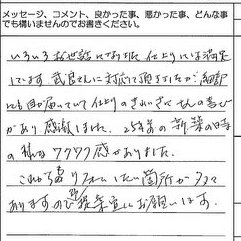 メッセージ、コメント、良かった事、悪かった事、どんな事
でも構いませんのでお書きください。
いろいろお世話になりました 仕上りには満足
しています 武良さんに対応して頂きましたが 細部
にも目が届いていて仕上りのきれいさと
があり 感激しました。25年前の新築の時
の様な ワクワク感がありました。
これからも リフォームしたい箇所が
ありますので 提案宜しくお願いします。